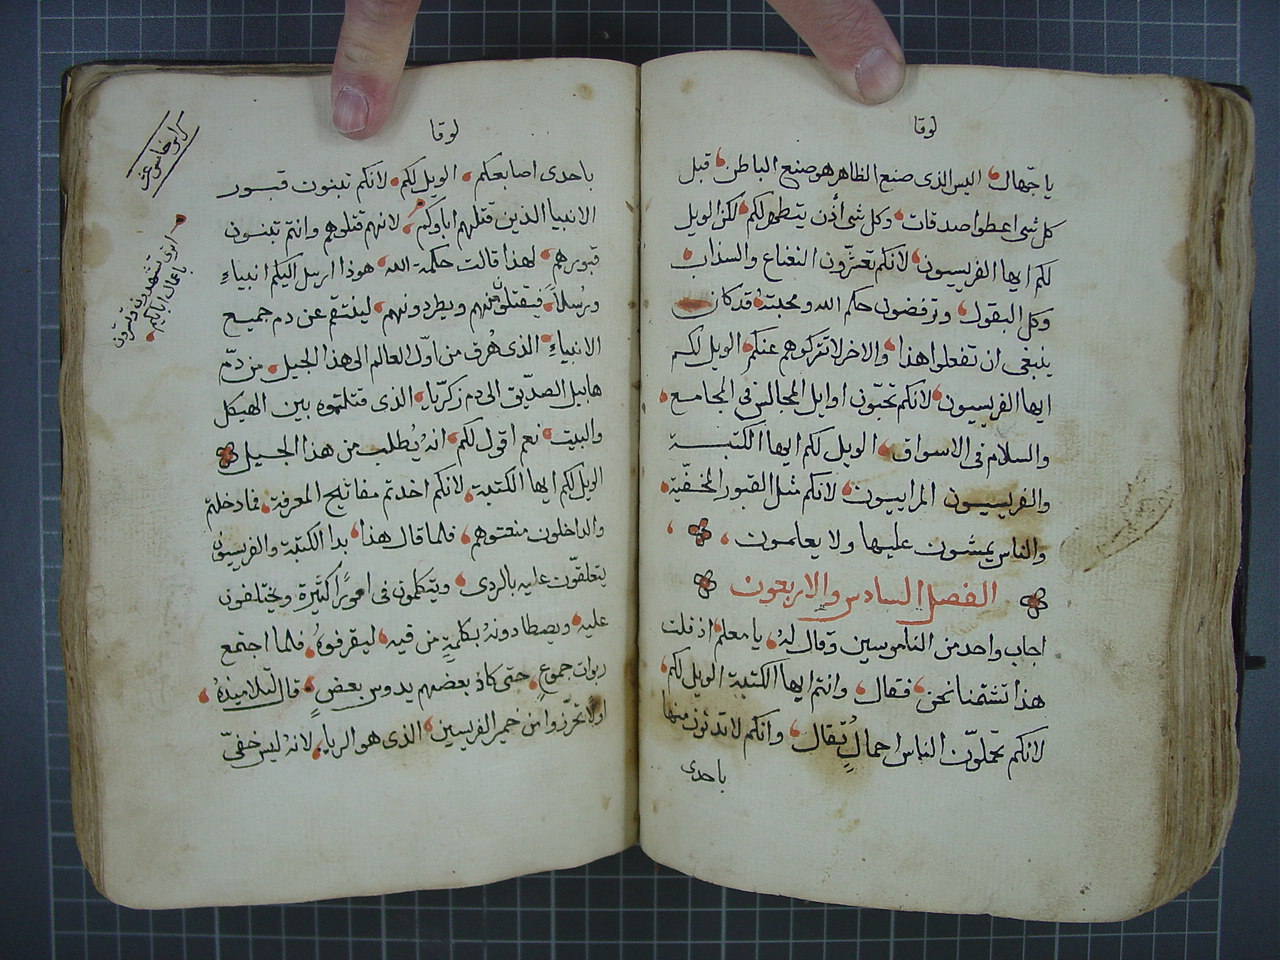 لوقا
يا جهال اليس الذى صنع الظاهر هو صنع الباطن قبل
كل شى اعطوا صدقات وكل شى أذن يتطهر لكم لكن الويل
لكم ايها الفريسيون لانكم تعشّرون النعناع والسذاب
وكل البقول وترفضون حكم الله ومحبته قد كان
ينبغى ان تفعلوا هذا والاخر لا تتركوهم عنكم الويل لكم
ايها الفريسيون لانكم تحبّون اوايل المجالس فى المجامع
والسلام فى الاسواق الويل لكم ايها الكتبة
والفريسيون المراييون لانكم مثل القبور المخفّية
والناس يمشون عليها ولا يعلمون
الفصل السادس والاربعون
اجاب واحد من الناموسيين وقال لهُ يا معلم اذ قلت
هذا تشتمنا نحن فقال وانتم ايها الكتبة الويل لكم
لانكم تحمّلون الناس احمالٍ ثُقال وانكم لا تدنون منها
باحدى
لوقا
باحدى اصابعكم الويل لكم لانكم تبنون قبور
الانبيا الذين قتلهم اباوكم لانهم قتلوهم وانتم تبنون
قبورهم لهذا قالت حكمة الله هوذا ارسل اليكم انبياءِ
ورُسلاً فيقتلون منهم ويطردونهم لينتقم عن دم جميع
الانبياءِ الذى هُرق من اوّل العالم الى هذا الجيل من دمّ
هابيل الصدّيق الى دم زكريّا الذى قتلتموه بين الهيكل
والبيت نعم اقول لكم انهُ يُطلب من هذا الجيل
الويل لكم ايها الكتبة لانكم اخذتم مفاتيح المعرفة فما دخلتم
والداخلون منعتموهم فلما قال هذا بدا الكتبة والفريسيون
يتعلقون عليه بالردى ويتكلمون فى امورًا كثيرة ويختلفون
عليه ويصطادونهُ بكلمةٍ من فيه ليقرفوهُ فلما اجتمع
ربوات جموعٍ حتى كاد بعضهم يدوس بعضٍ قال لتلاميذهُ
اولا تحرّزوا من خمير الفريسين الذى هو الريا لانهُ ليس خفىّ
كراس خامس عشر
تشهدون وتسرون
باعمال اباكم